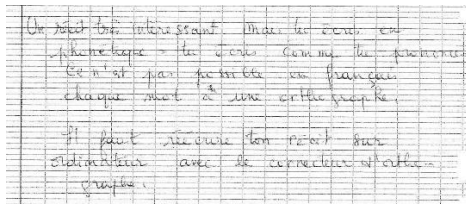 Un récit très intéressant. Mais tu écris en
phonétique - tu écris comme tu prononces
Ce n'est pas possible en français
chaque mot à une orthographe.
Il faut réécrire ton récit sur
ordinateur avec le correcteur d'ortho-
graphe.